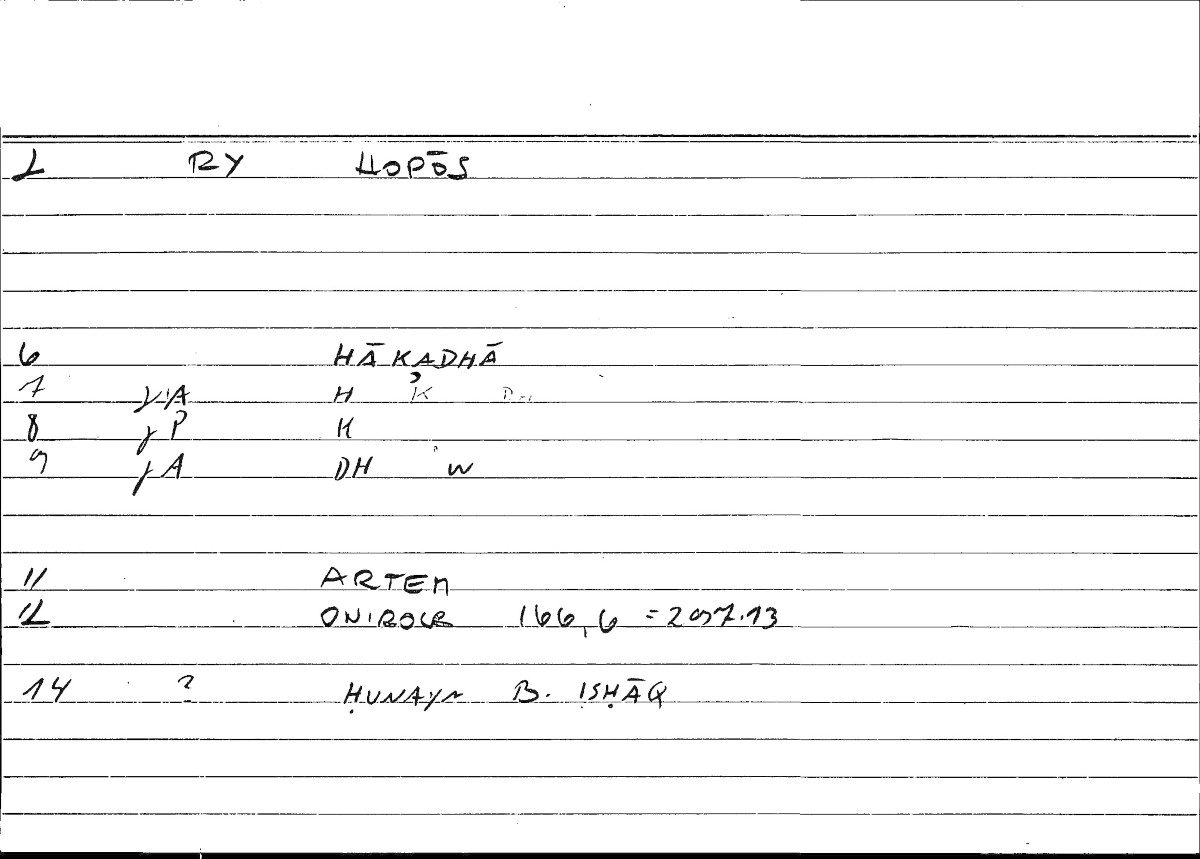 2 RY HOPŌS
6 HĀKADHĀ
7 γA H K
8 γP K
9 γA DH W
11 ARTEM
12 ONIROCR 166,6 = 297.13
14 ? ḤUNAYN B. ISḤĀQ